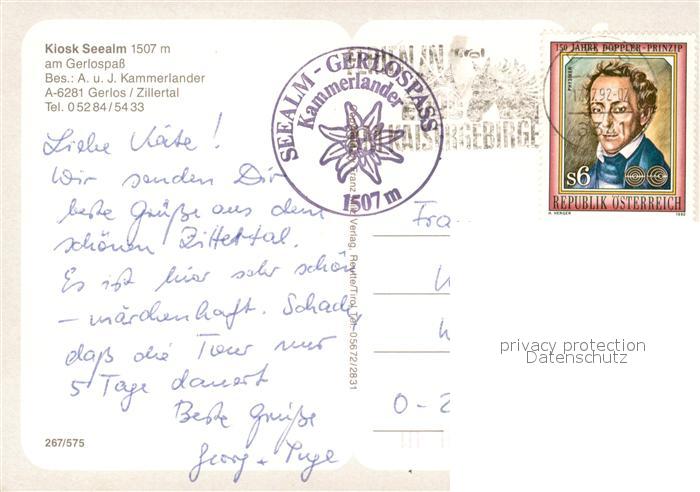 Kiosk Seealm 1507 m
am Gerlospaß
Bes.: A. u. J. Kammerlander
A-6281 Gerlos / Zillertal
Tel. 0 52 84 / 54 33
Liebe Käte!
Wir senden Dir
beste Grüße aus dem
schönen Zillertal.
Es ist hier sehr schön
– märchenhaft. Schade,
daß die Tour nur
5 Tage dauert
Beste Grüße
Georg + Inge
267/575
SEEALM - GERLOSPASS
Kammerlander
1507 m
KAISERGEBIRGE
Verlag, Reutte/Tirol, Tel. 05672/2831
150 JAHRE DOPPLER-PRINZIP
s6
REPUBLIK ÖSTERREICH
1992
Fra
O - 2
privacy protection
Datenschutz